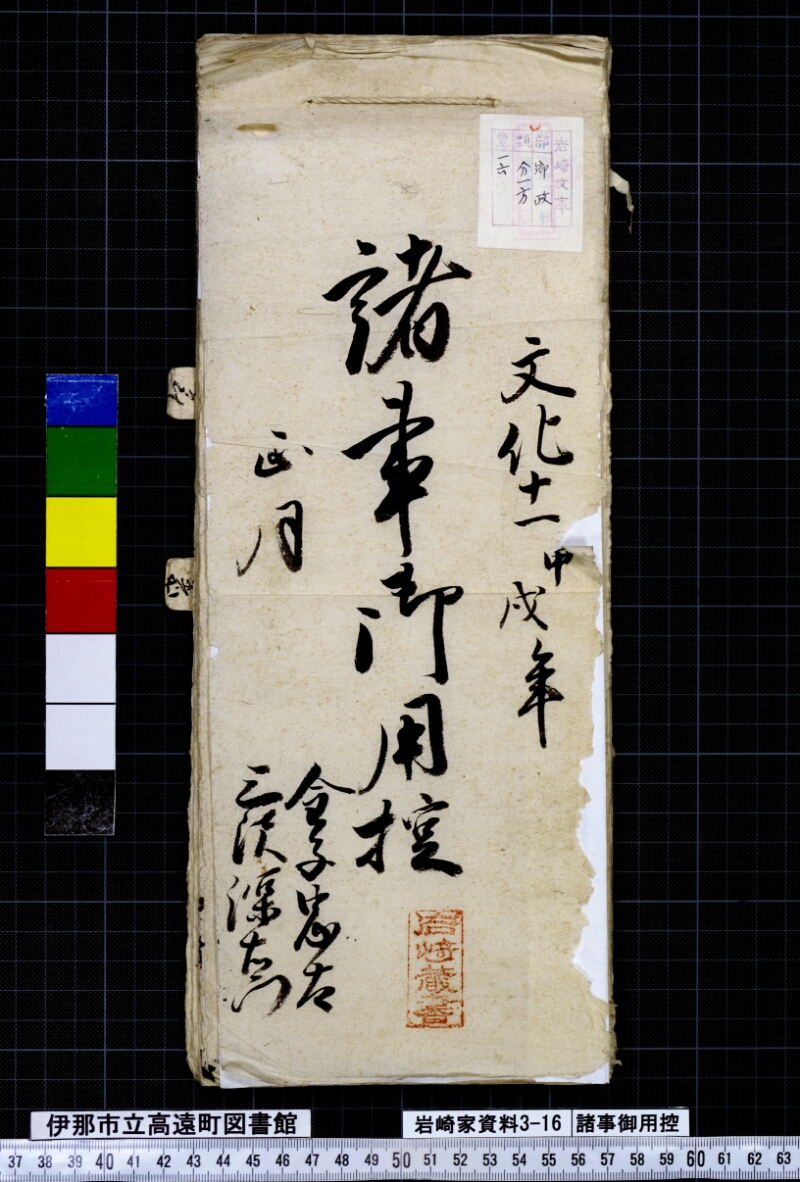 岩崎文庫
部 御政
類 分一方
一六
文化十一甲戌年
諸事御用控
正月
金子忠右
三沢源右衛門
岩崎蔵書
伊那市立高遠町図書館
岩崎家資料3-16
諸事御用控
37 38 39 40 41 42 43 44 45 46 47 48 49 50 51 52 53 54 55 56 57 58 59 60 61 62 63